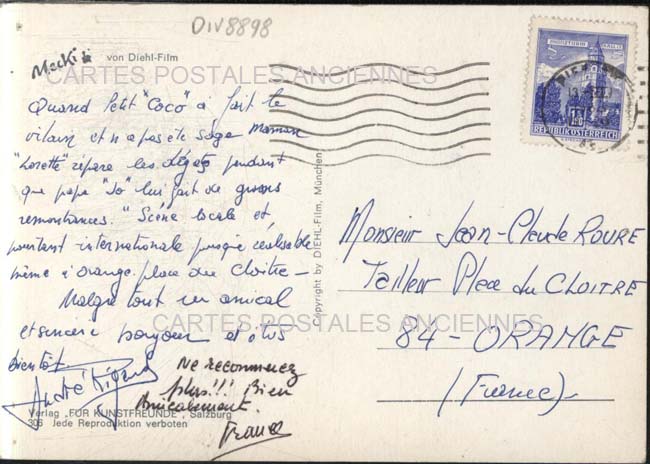 DIV8898
Mecki von Diehl-Film
CARTES POSTALES ANCIENNES
Quand Petit "Coco" a fait le
vilain et n a pas été sage maman
"Lorette" répare les dégats pendant
que papa "Jo" lui fait de grosses
remontrances. "Scène locale et,
pourtant internationale puisque réalisable
même à orange. place du Cloître -
Malgré tout un amical
et sincère bonjour et
Bientôt
André
Ne recommencez
plus!!! Bien
Amicalement
France
Verlag „FÜR KUNSTFREUNDE", Salzburg
306 Jede Reproduktion verboten
Copyright by DIEHL-Film, München
CARTES POSTALES ANCIENNES
REPUBLIK ÖSTERREICH
Monsieur Jean-Claude ROURE
Tailleur Place du CLOITRE
84 - ORANGE
(France)